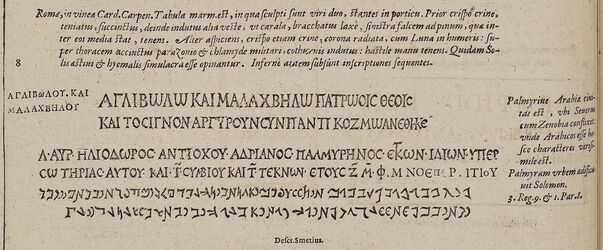 Romæ, in vinea Card. Carpen. Tabula marm. est, in qua sculpti sunt viri duo, stantes in porticu. Prior crispo crine,
succinctus, deinde indutus alia veste, bracchatus laxe, sinistra falcem ad pinum, quæ in-
ter eos media stat, tenens. Alter aspiciens, crispo etiam crine, corona radiata, cum Luna in humeris: su-
per thoracem accinctus parazonio & chlamyde militari, cothurnis indutus: hastile manu tenens. Quidam So-
lis æstivi & hyemalis simulacra esse opinantur. Inferne autem subsunt inscriptiones sequentes.
8
ΑΓΛΙΒΩΛΟΥ. ΚΑΙ
ΜΑΛΑΧΒΗΛΟΥ
ΑΓΛΙΒΩΛΩ ΚΑΙ ΜΑΛΑΧΒΗΛΩ ΠΑΤΡΩΟΙΣ ΘΕΟΙΣ
ΚΑΙ ΤΟ ΣΙΓΝΟΝ ΑΡΓΥΡΟΥΝ ΣΥΝ ΠΑΝΤΙ ΚΟΖΜΩ ΑΝΕΘΗΚΕ
Λ · ΑΥΡ · ΗΛΙΟΔΩΡΟΣ · ΑΝΤΙΟΧΟΥ · ΑΔΡΙΑΝΟΣ · ΠΑΛΜΥΡΗΝΟΣ · ΕΚ ΤΩΝ · ΙΔΙΩΝ · ΥΠΕΡ
ΣΩΤΗΡΙΑΣ · ΑΥΤΟΥ · ΚΑΙ · Τ · ΣΥΜΒΙΟΥ · ΚΑΙ · Τ · ΤΕΚΝΩΝ · ΕΤΟΥΣ · Ζ · Μ · Φ · ΜΗΝΟΣ
Palmyrine Arabiæ civi-
tas est, ubi Severus
cum Zenobia conflixit:
unde Arabicos esse hos-
ce characteres veri-
mile est.
Palmyram urbem ædifica-
vit Solomon.
3. Reg. 9. & 1. Par. 8.
Descr. Smetius.